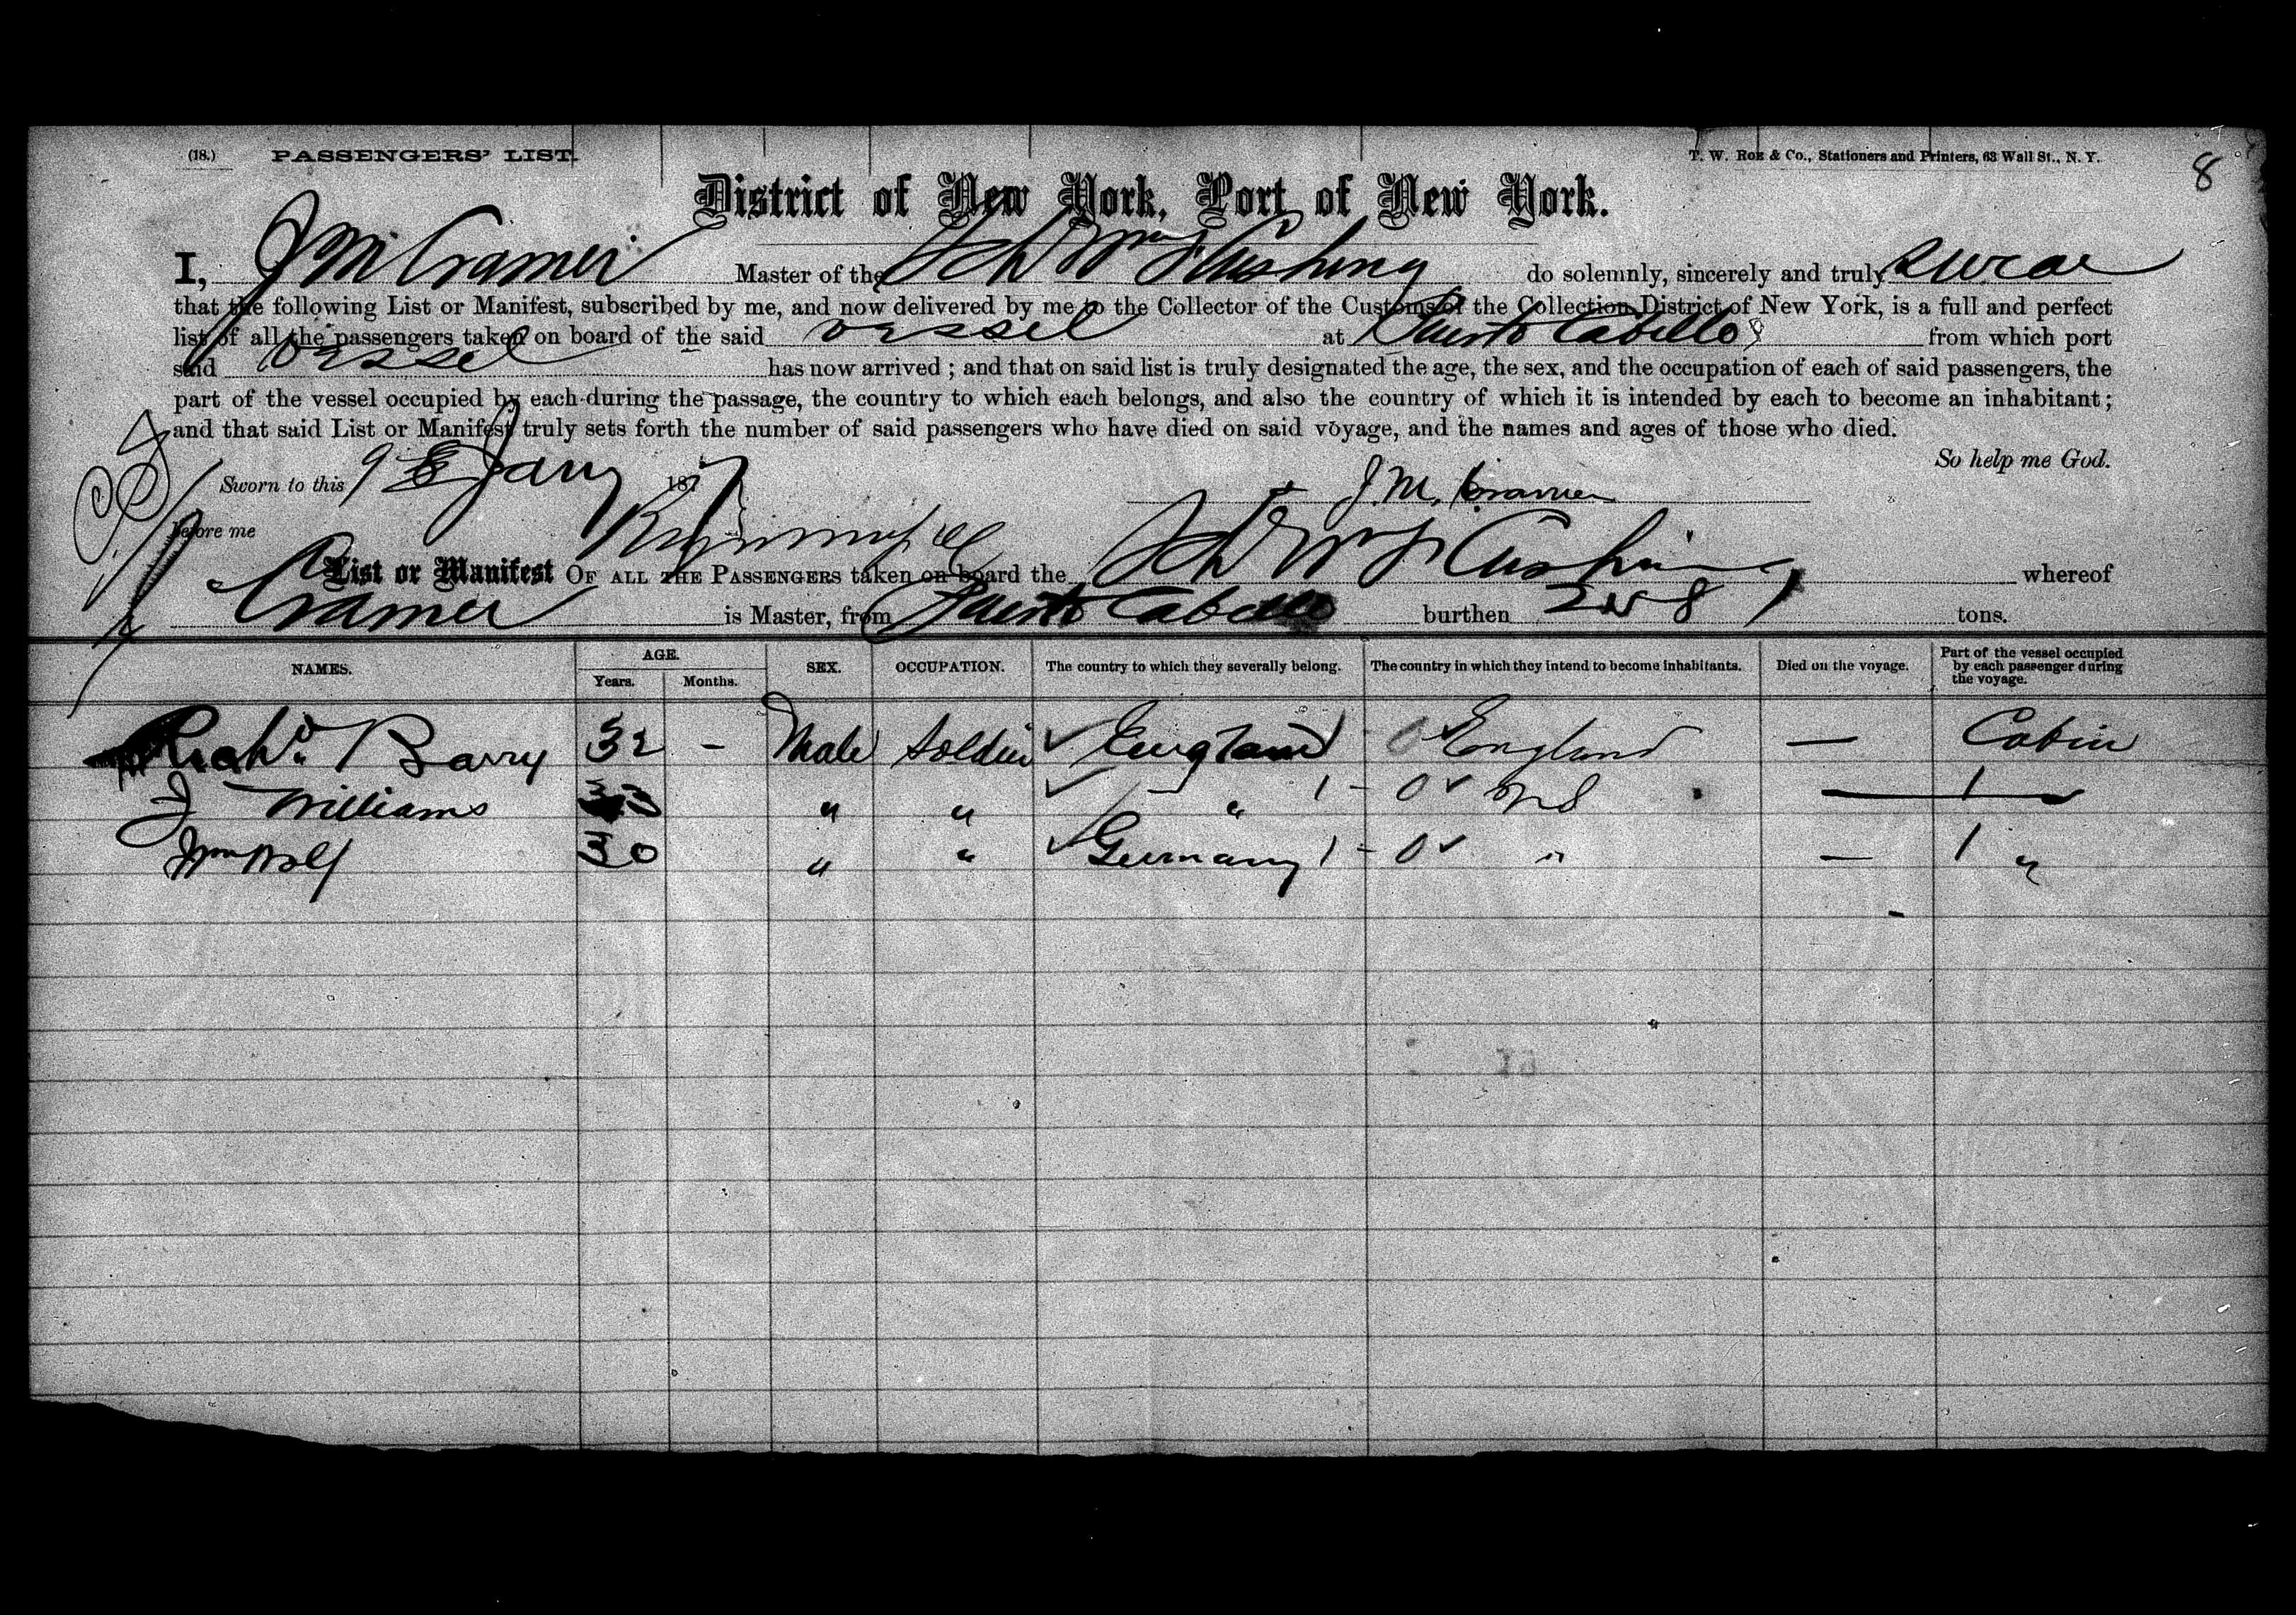 (18.) PASSENGERS' LIST. T. W. Roe & Co., Stationers and Printers, 63 Wall St., N. Y. 8
District of New York, Port of New York.
I, J M Cramer Master of the Sch Wm F Cushing do solemnly, sincerely and truly swear
that the following List or Manifest, subscribed by me, and now delivered by me to the Collector of the Customs of the Collection District of New York, is a full and perfect
list of all the passengers taken on board of the said vessel at Puerto Cabello from which port
said vessel has now arrived ; and that on said list is truly designated the age, the sex, and the occupation of each of said passengers, the
part of the vessel occupied by each during the passage, the country to which each belongs, and also the country of which it is intended by each to become an inhabitant ;
and that said List or Manifest truly sets forth the number of said passengers who have died on said voyage, and the names and ages of those who died.
So help me God.
Sworn to this 9 Jany 1877 J. M. Cramer
Before me
List or Manifest OF ALL THE PASSENGERS taken on board the Sch Wm F Cushing whereof
Cramer is Master, from Puerto Cabello burthen tons.
NAMES. AGE. Years. Months. SEX. OCCUPATION. The country to which they severally belong. The country in which they intend to become inhabitants. Died on the voyage. Part of the vessel occupied by each passenger during the voyage.
Richd. Barry 32 - Male Soldier England England — Cabin
J Williams 33 " " " 1 - 0 US — 1
Wm Wolf 30 " " Germany 1 - 0 " — 1 "